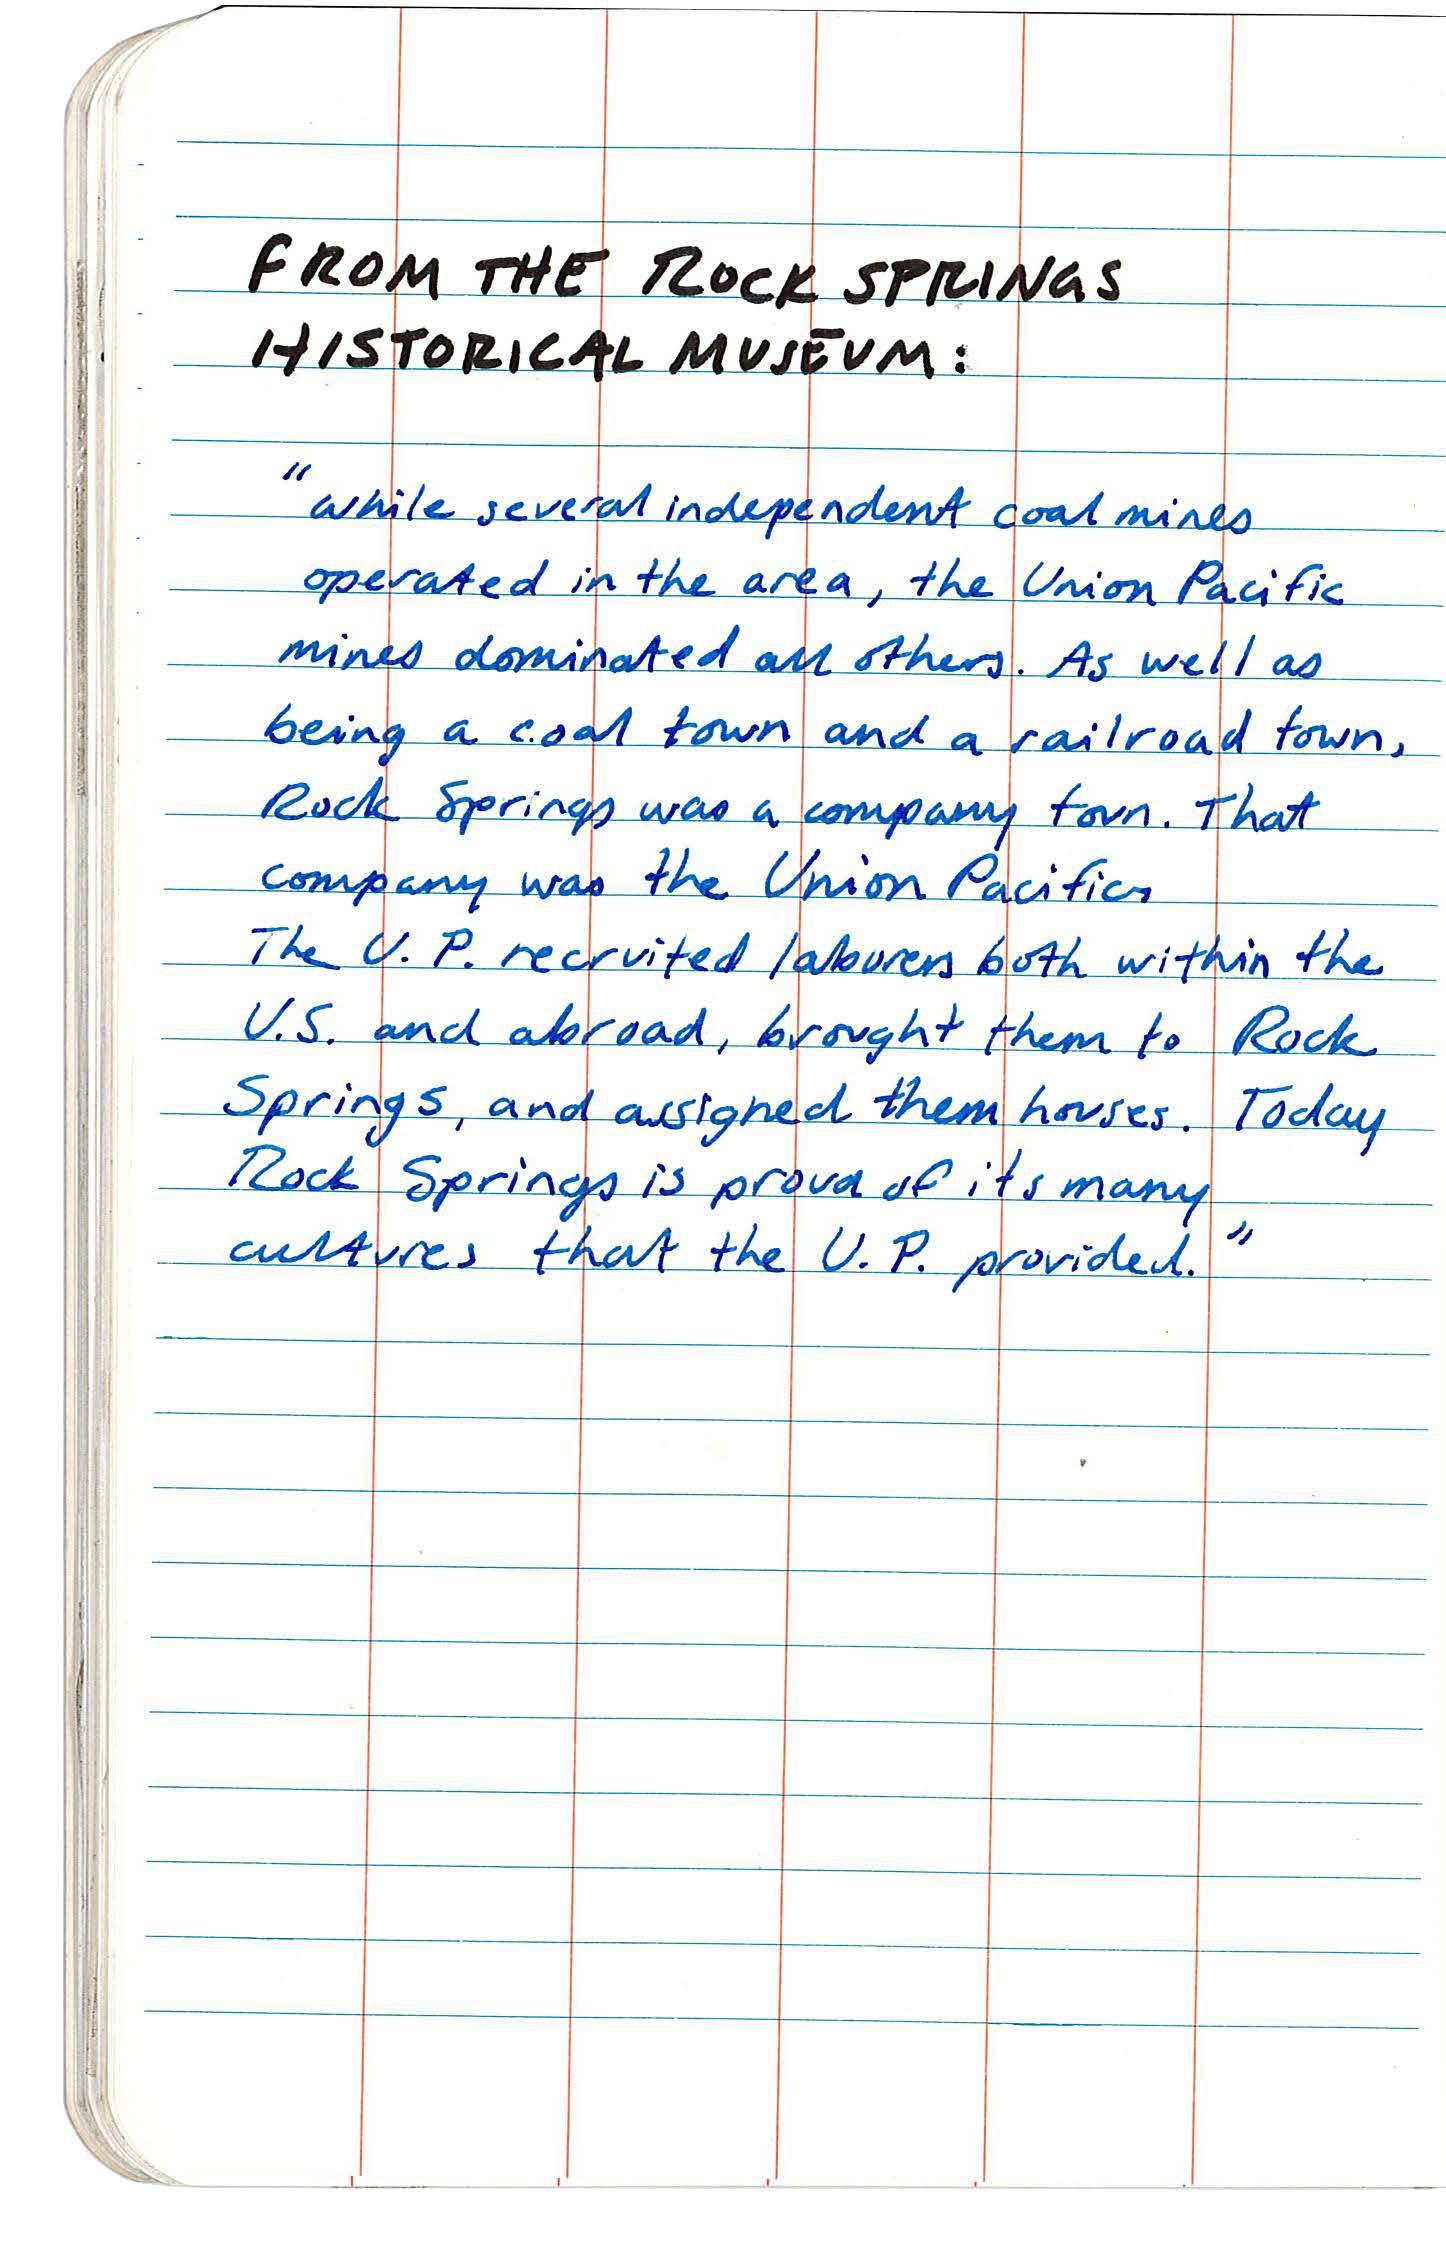 FROM THE ROCK SPRINGS
HISTORICAL MUSEUM:
"while several independent coal mines
operated in the area, the Union Pacific
mines dominated all others. As well as
being a coal town and a railroad town,
Rock Springs was a company town. That
company was the Union Pacific.
The U. P. recruited labourers both within the
U.S. and abroad, brought them to Rock
Springs, and assigned them houses. Today
Rock Springs is proud of its many
cultures that the U. P. provided."